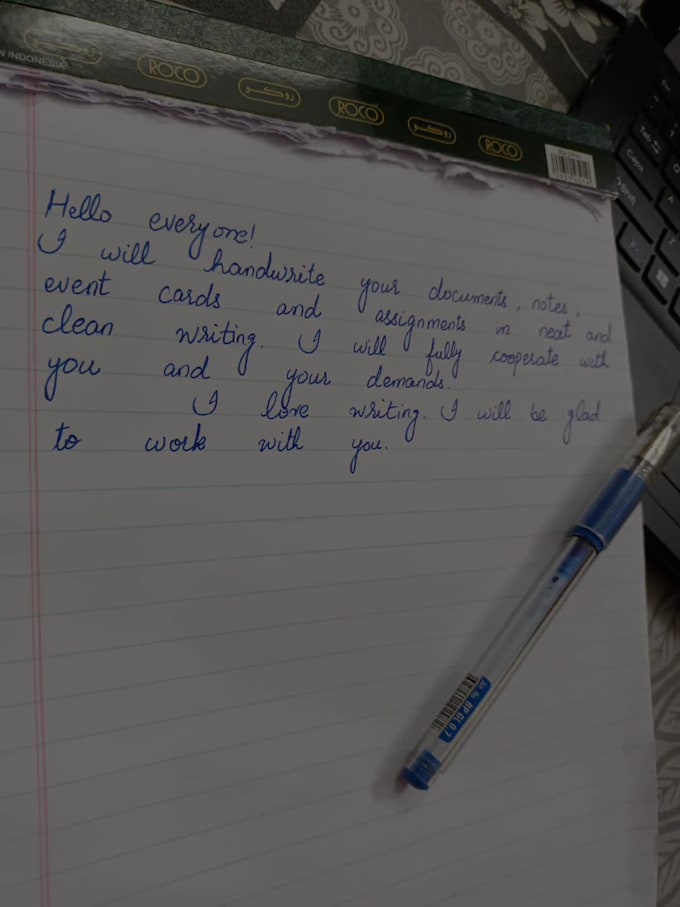 N INDONESIA
ROCO
روكو
ROCO
روكو
ROCO
Hello everyone!
I will handwrite your documents, notes,
event cards and assignments in neat and
clean writing. I will fully cooperate with
you and your demands.
I love writing. I will be glad
to work with you.
Tab
Caps
Shift
Fn
A
Z
BP GL 0.7